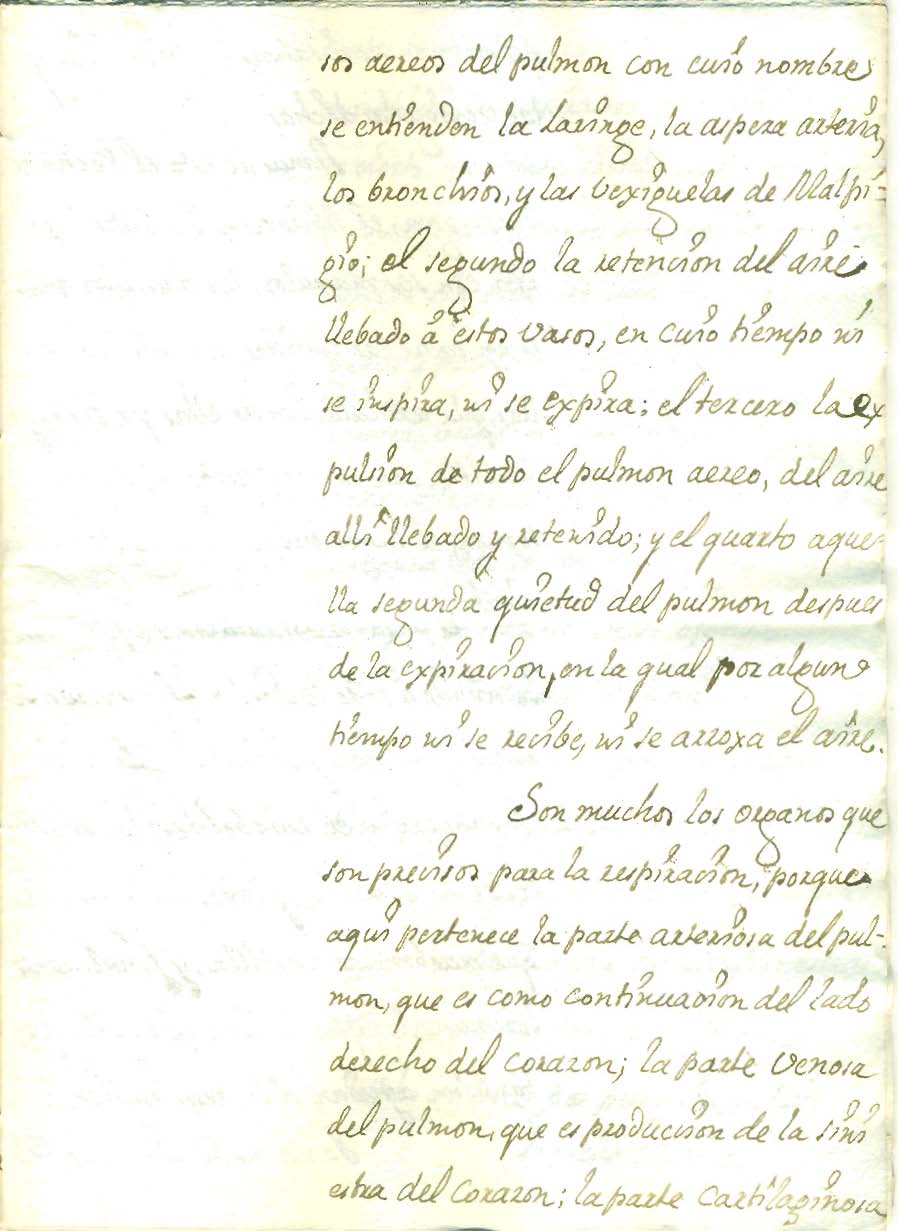 sos aereos del pulmon con cuio nombre
se entienden la Laringe, la aspera arteria,
los bronchios, y las vexiguelas de Malpi=
gio; el segundo la retencion del aire
llebado â estos vasos, en cuio tiempo ni
se inspira, ni se expira; el tercero la ex
pulsion de todo el pulmon aereo, del aire
alli llebado y retenido; y el quarto aque-
lla segunda quietud del pulmon despues
de la expiracion, en la qual por algun
tiempo ni se recibe, ni se arroxa el aire.
Son muchos los organos que
son precisos para la respiracion, porque
aqui pertenece la parte arteriosa del pul-
mon, que es como continuacion del lado
derecho del corazon; la parte venosa
del pulmon, que es producion de la sini
estra del corazon; la parte cartilaginosa